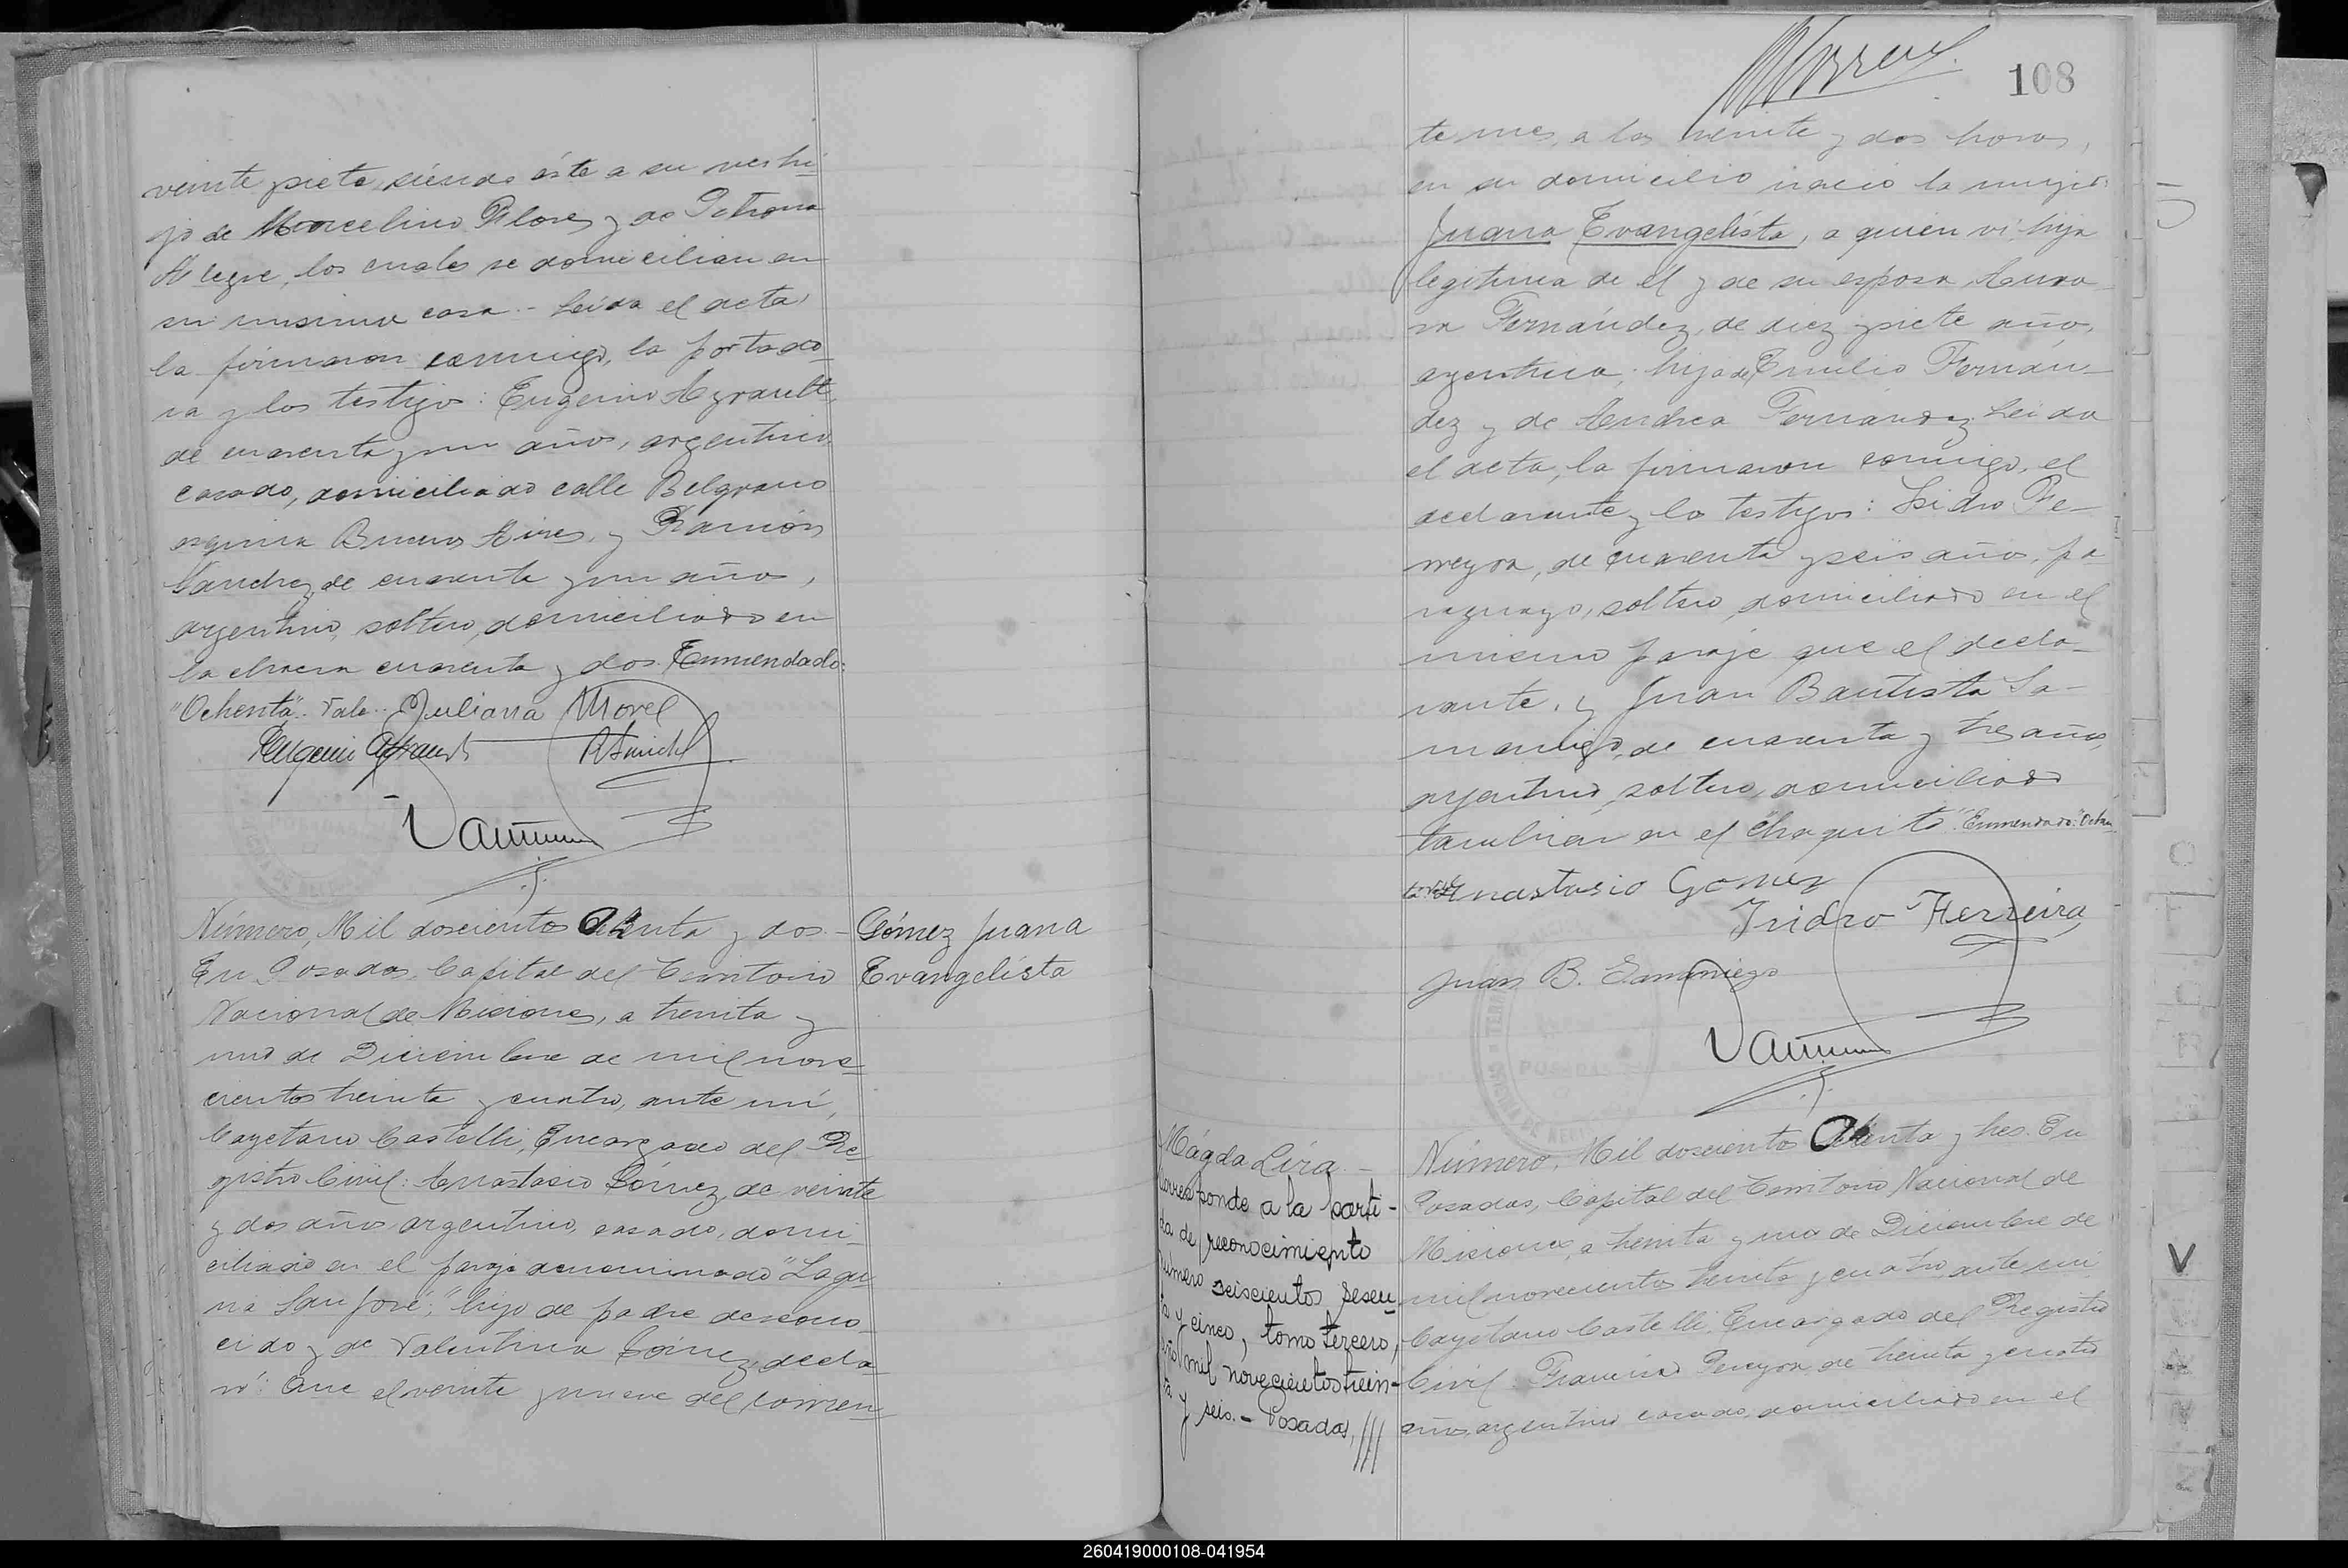 veinte y siete, siendo ésta a su vez hi-
ja de Marcelino Flores y de Petrona
Alegre, los cuales se domicilian en
su misma casa.- Leída el acta,
la firmaron conmigo, la portado-
ra y los testigos: Eugenio Ayrault,
de cuarenta y un años, argentino,
casado, domiciliado calle Belgrano
esquina Buenos Aires, y Ramón
Sanchez, de cuarenta y un años,
argentino, soltero, domiciliado en
la chacra cuarenta y dos. Enmendado:
"Ochenta".. Vale.. Juliana Morel
Eugenio Ayrault
Número, Mil doscientos Ochenta y dos.-
En Posadas, Capital del Territorio
Nacional de Misiones, a treinta y
uno de Diciembre de mil nove-
cientos treinta y cuatro, ante mí,
Cayetano Castelli, Encargado del Re-
gistro Civil: Anastacio Gómez, de veinte
y dos años, argentino, casado, domi-
ciliado en el paraje denominado "Lagu-
na San José", hijo de padre descono-
cido y de Valentina Gómez, decla-
ró: Que el veinte y nueve del corrien-
Gómez Juana
Evangelista
108
te mes, a las veinte y dos horas,
en su domicilio nació la mujer
Juana Evangelista, a quien vi, hija
legítima de él y de su esposa,
Fernández, de diez y siete años,
argentina, hija de Emilio Fernán-
dez y de Andrea Fernández. Leída
el acta, la firmaron conmigo, el
declarante y los testigos: Isidro Fe-
rreyra, de cuarenta y seis años, pa-
raguayo, soltero, domiciliado en el
mismo paraje que el decla-
rante, y Juan Bautista Sa-
maniego, de cuarenta y tres años,
argentino, soltero, domiciliado
tambien en el "Chaquito". Enmendado: "Ochen
ta" Vale Anastasio Gomez
Isidro Herreira
Juan B. Samaniego
POSADAS
Magda Lira.-
Corresponde a la parti-
da de reconocimiento
número seiscientos sesen-
ta y cinco, tomo tercero,
año mil novecientos trein-
ta y seis.- Posadas, ///
Número, Mil doscientos Ochenta y tres. En
Posadas, Capital del Territorio Nacional de
Misiones, a treinta y uno de Diciembre de
mil novecientos treinta y cuatro, ante mí
Cayetano Castelli, Encargado del Registro
Civil: Francisco Pereyra, de treinta y cuatro
años, argentino, casado, domiciliado en el
V
260419000108-041954